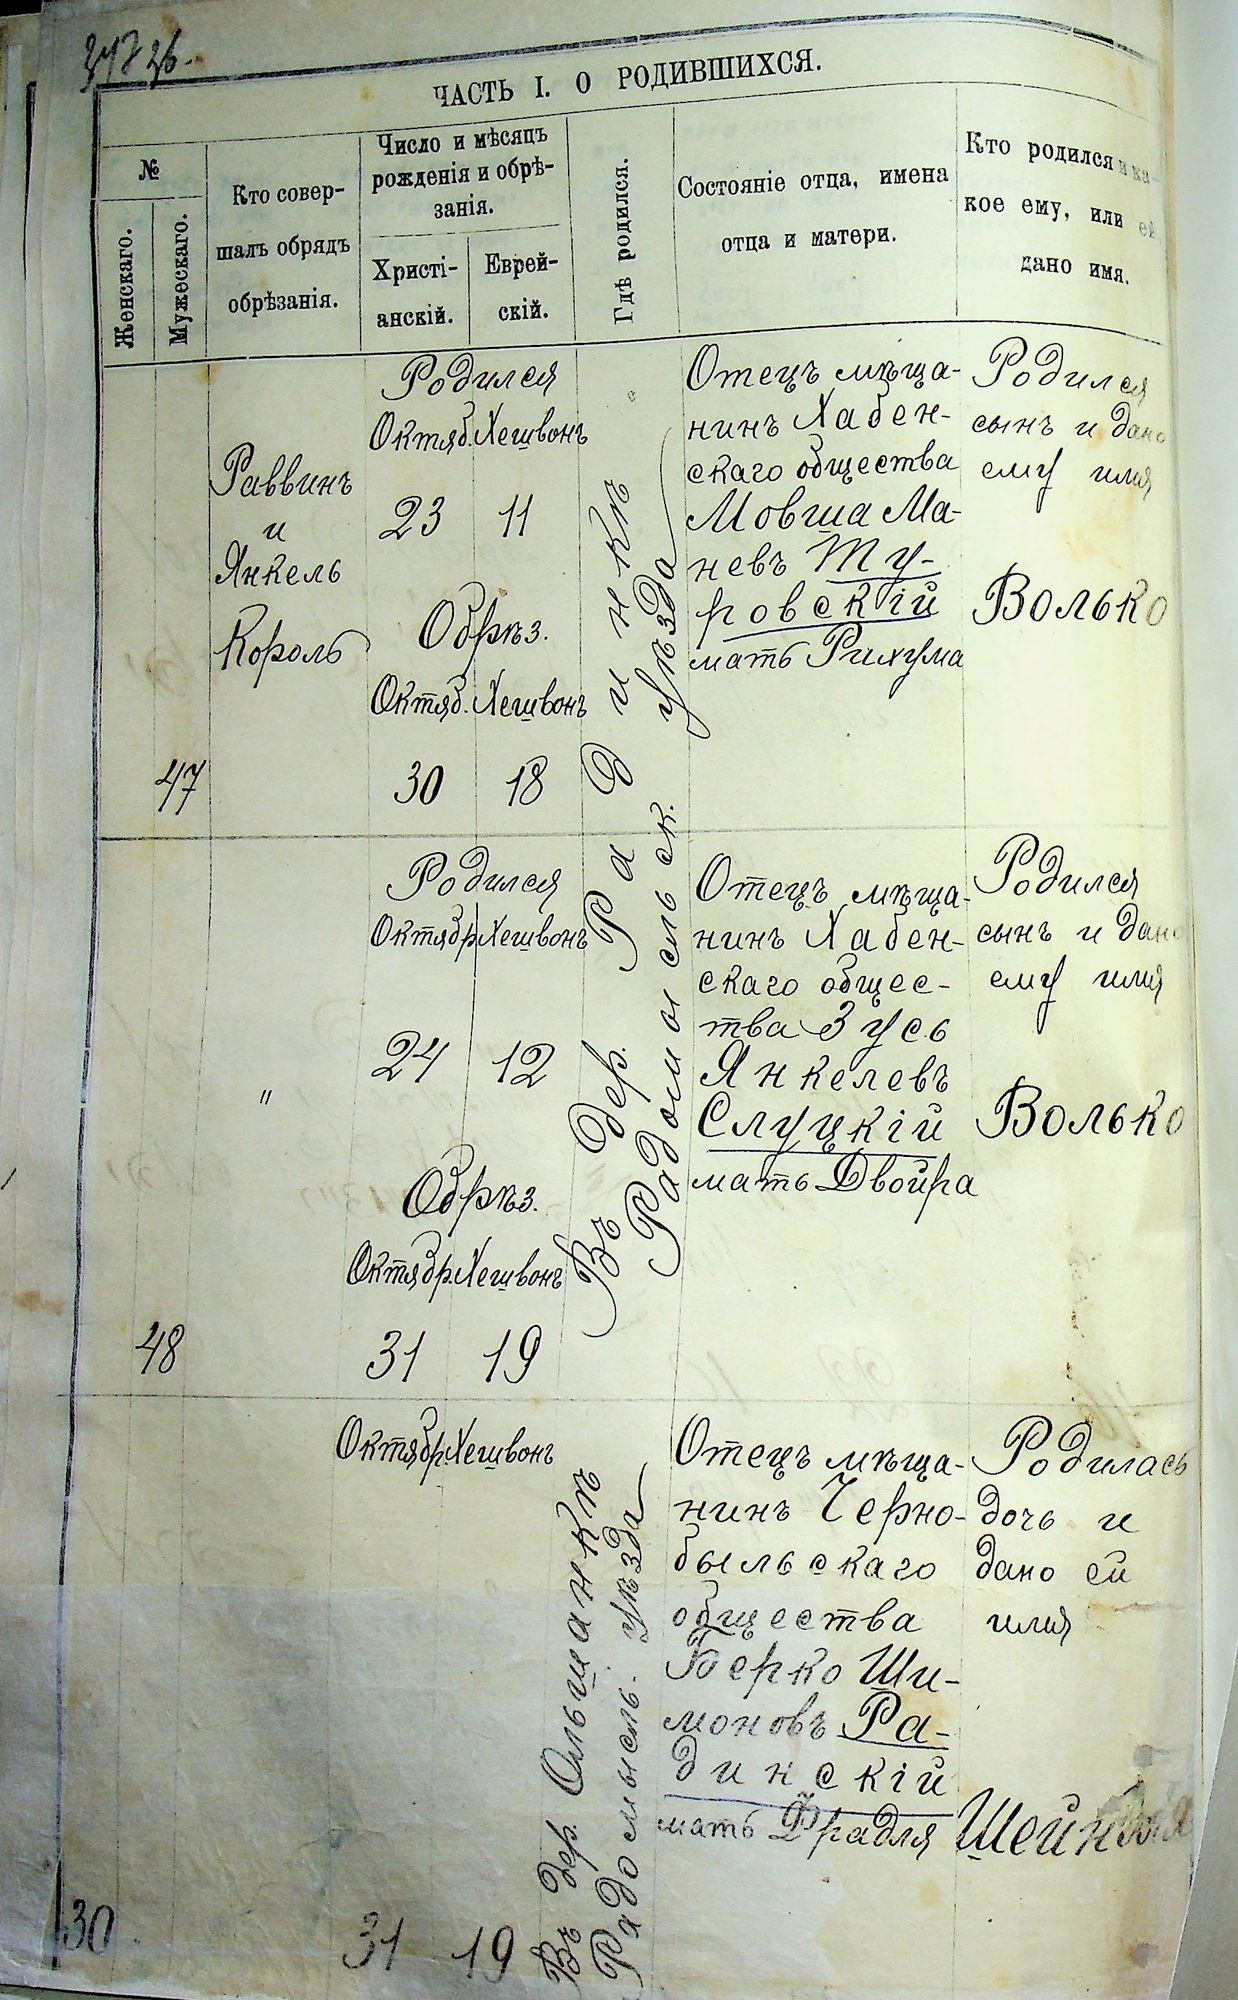 ЧАСТЬ I. О РОДИВШИХСЯ.
№
Женскаго.
Мужескаго.
Кто совер-
шалъ обрядъ
обрѣзанія.
Число и мѣсяцъ
рожденія и обрѣ-
занія.
Христі-
анскій.
Еврей-
скій.
Гдѣ родился.
Состояніе отца, имена
отца и матери.
Кто родился и ка-
кое ему, или ей
дано имя.
47
Раввинъ
и
Янкель
Король
Родился
Октяб. Хешвонъ
23 11
Обрѣз.
Октяб. Хешвонъ
30 18
Въ дер. Радинкѣ
Радомысльск. уѣзда
Отецъ мѣща-
нинъ Хабен-
скаго общества
Мовша Ма-
невъ Ту-
ровскій
мать Рихума
Родился
сынъ и дано
ему имя
Волько
48
"
Родился
Октябр. Хешвонъ
24 12
Обрѣз.
Октябр. Хешвонъ
31 19
Отецъ мѣща-
нинъ Хабен-
скаго общес-
тва Зусь
Янкелевъ
Слуцкій
мать Двойра
Родился
сынъ и дано
ему имя
Волько
30
Октябр. Хешвонъ
31 19
Въ дер. Ольшанкѣ
Радомысль. уѣзда
Отецъ мѣща-
нинъ Черно-
быльскаго
общества
Берко Ши-
моновъ Ра-
динскій
мать Фрадля
Родилась
дочь и
дано ей
имя